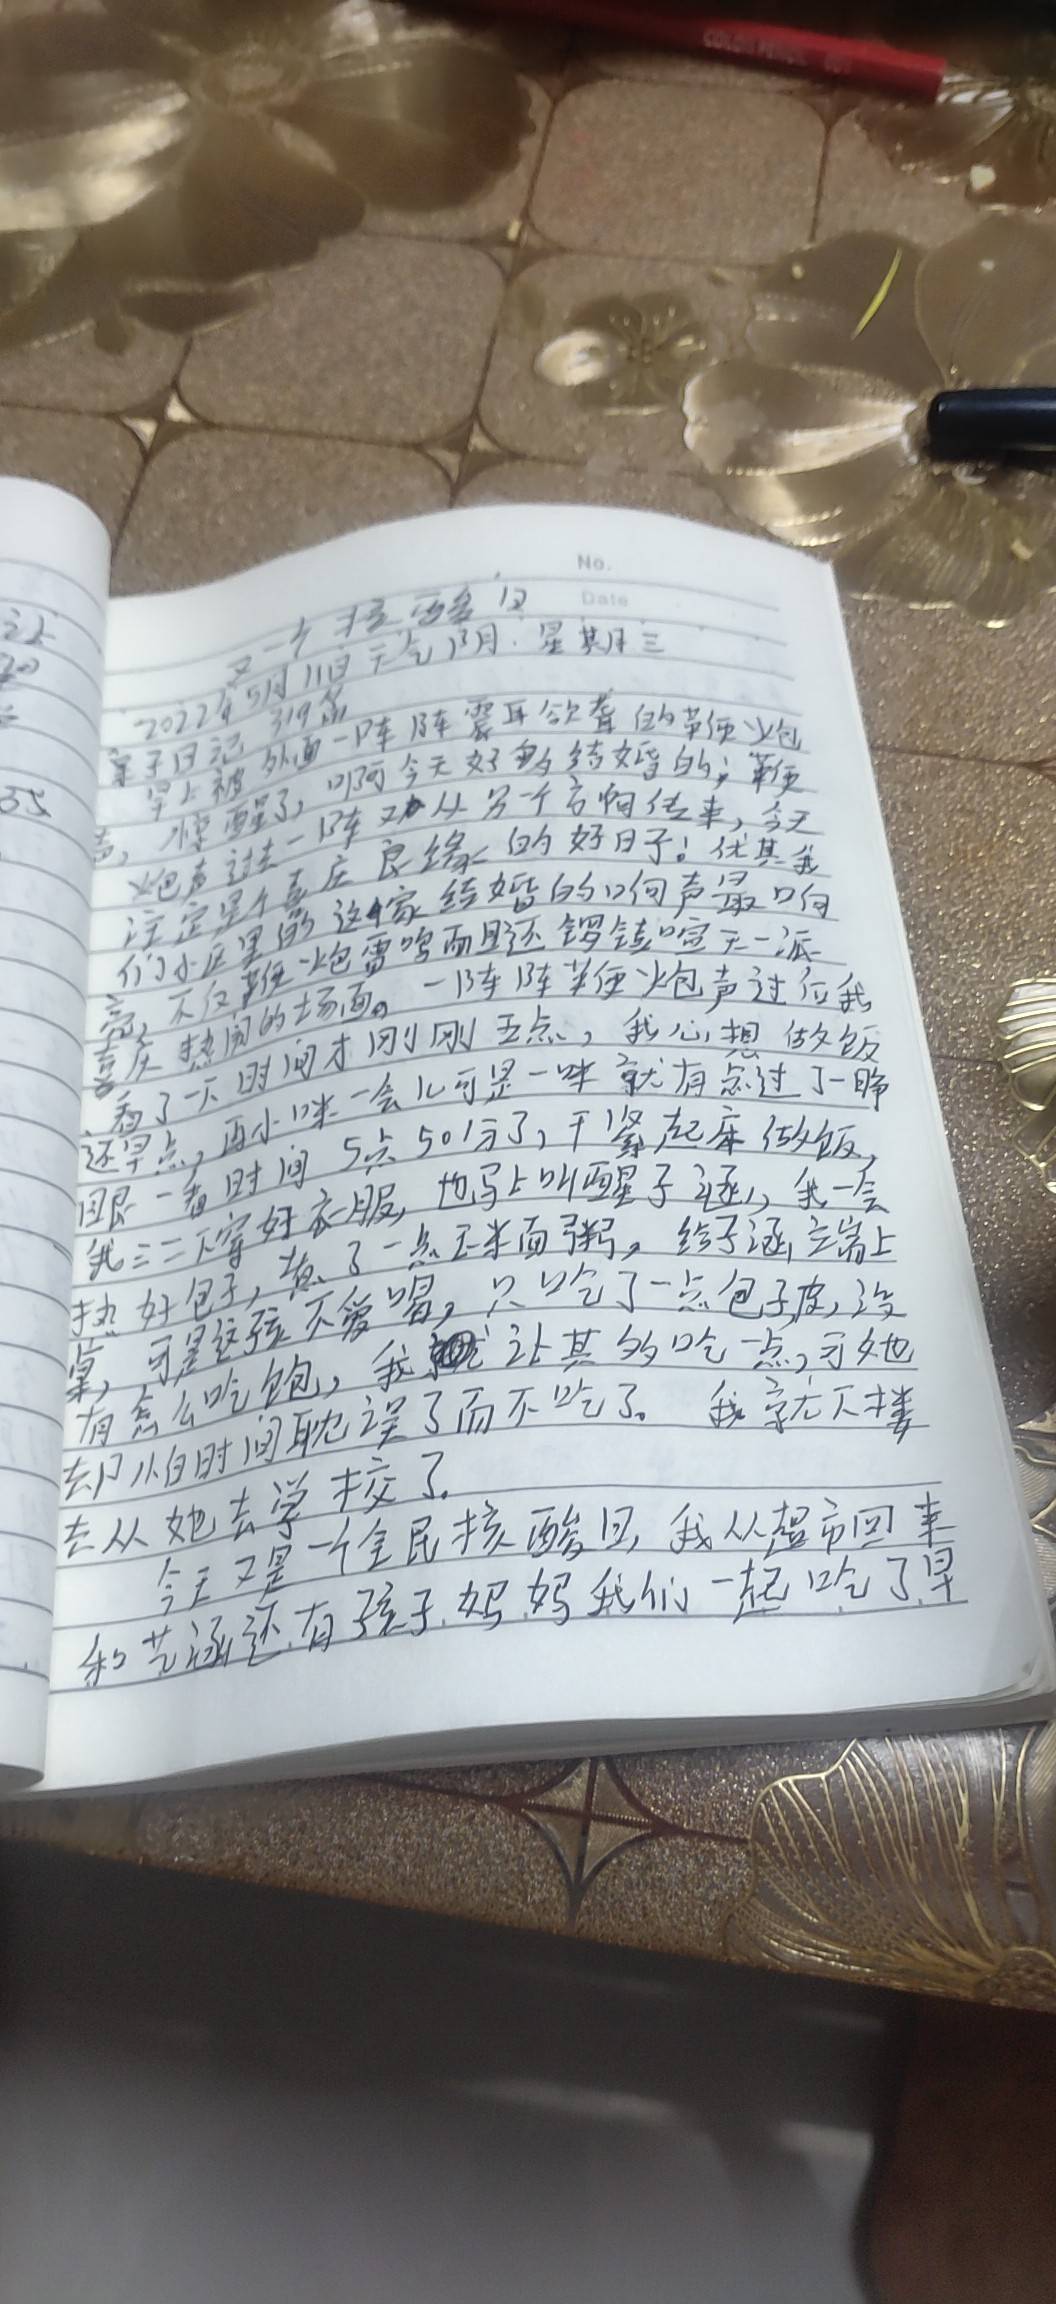 COLOR PENCIL
No.
Date
又一个核酸日
2022年5月11日 天气阴 星期三
亲子日记 319篇
早上被外面一阵阵震耳欲聋的鞭炮
声，惊醒了，啊今天好多结婚的，鞭
炮声过去一阵又从另一个方向传来，今天
注定是个喜庆良缘的好日子！优其我
们小区里的这家结婚的响声最响
亮，不仅鞭炮雷鸣而且还锣鼓喧天一派
喜庆热闹的场面。一阵阵鞭炮声过后我
看了一下时间才刚刚五点，我心想做饭
还早点，再小咪一会儿可是一咪就有点过了一睁
眼一看时间5点50分了，干紧起床做饭，
我三二下穿好衣服，也马上叫醒子涵，我一会
热好包子，煮了一点玉米面粥，给子涵端上
桌，可是这孩不爱喝，只吃了一点包子皮，没
有怎么吃饱，我让其多吃一点，可她
却怕时间耽误了而不吃了。我就下楼
去从她去学校了。
今天又是一个全民核酸日，我从超市回来
和艺涵还有孩子妈妈我们一起吃了早